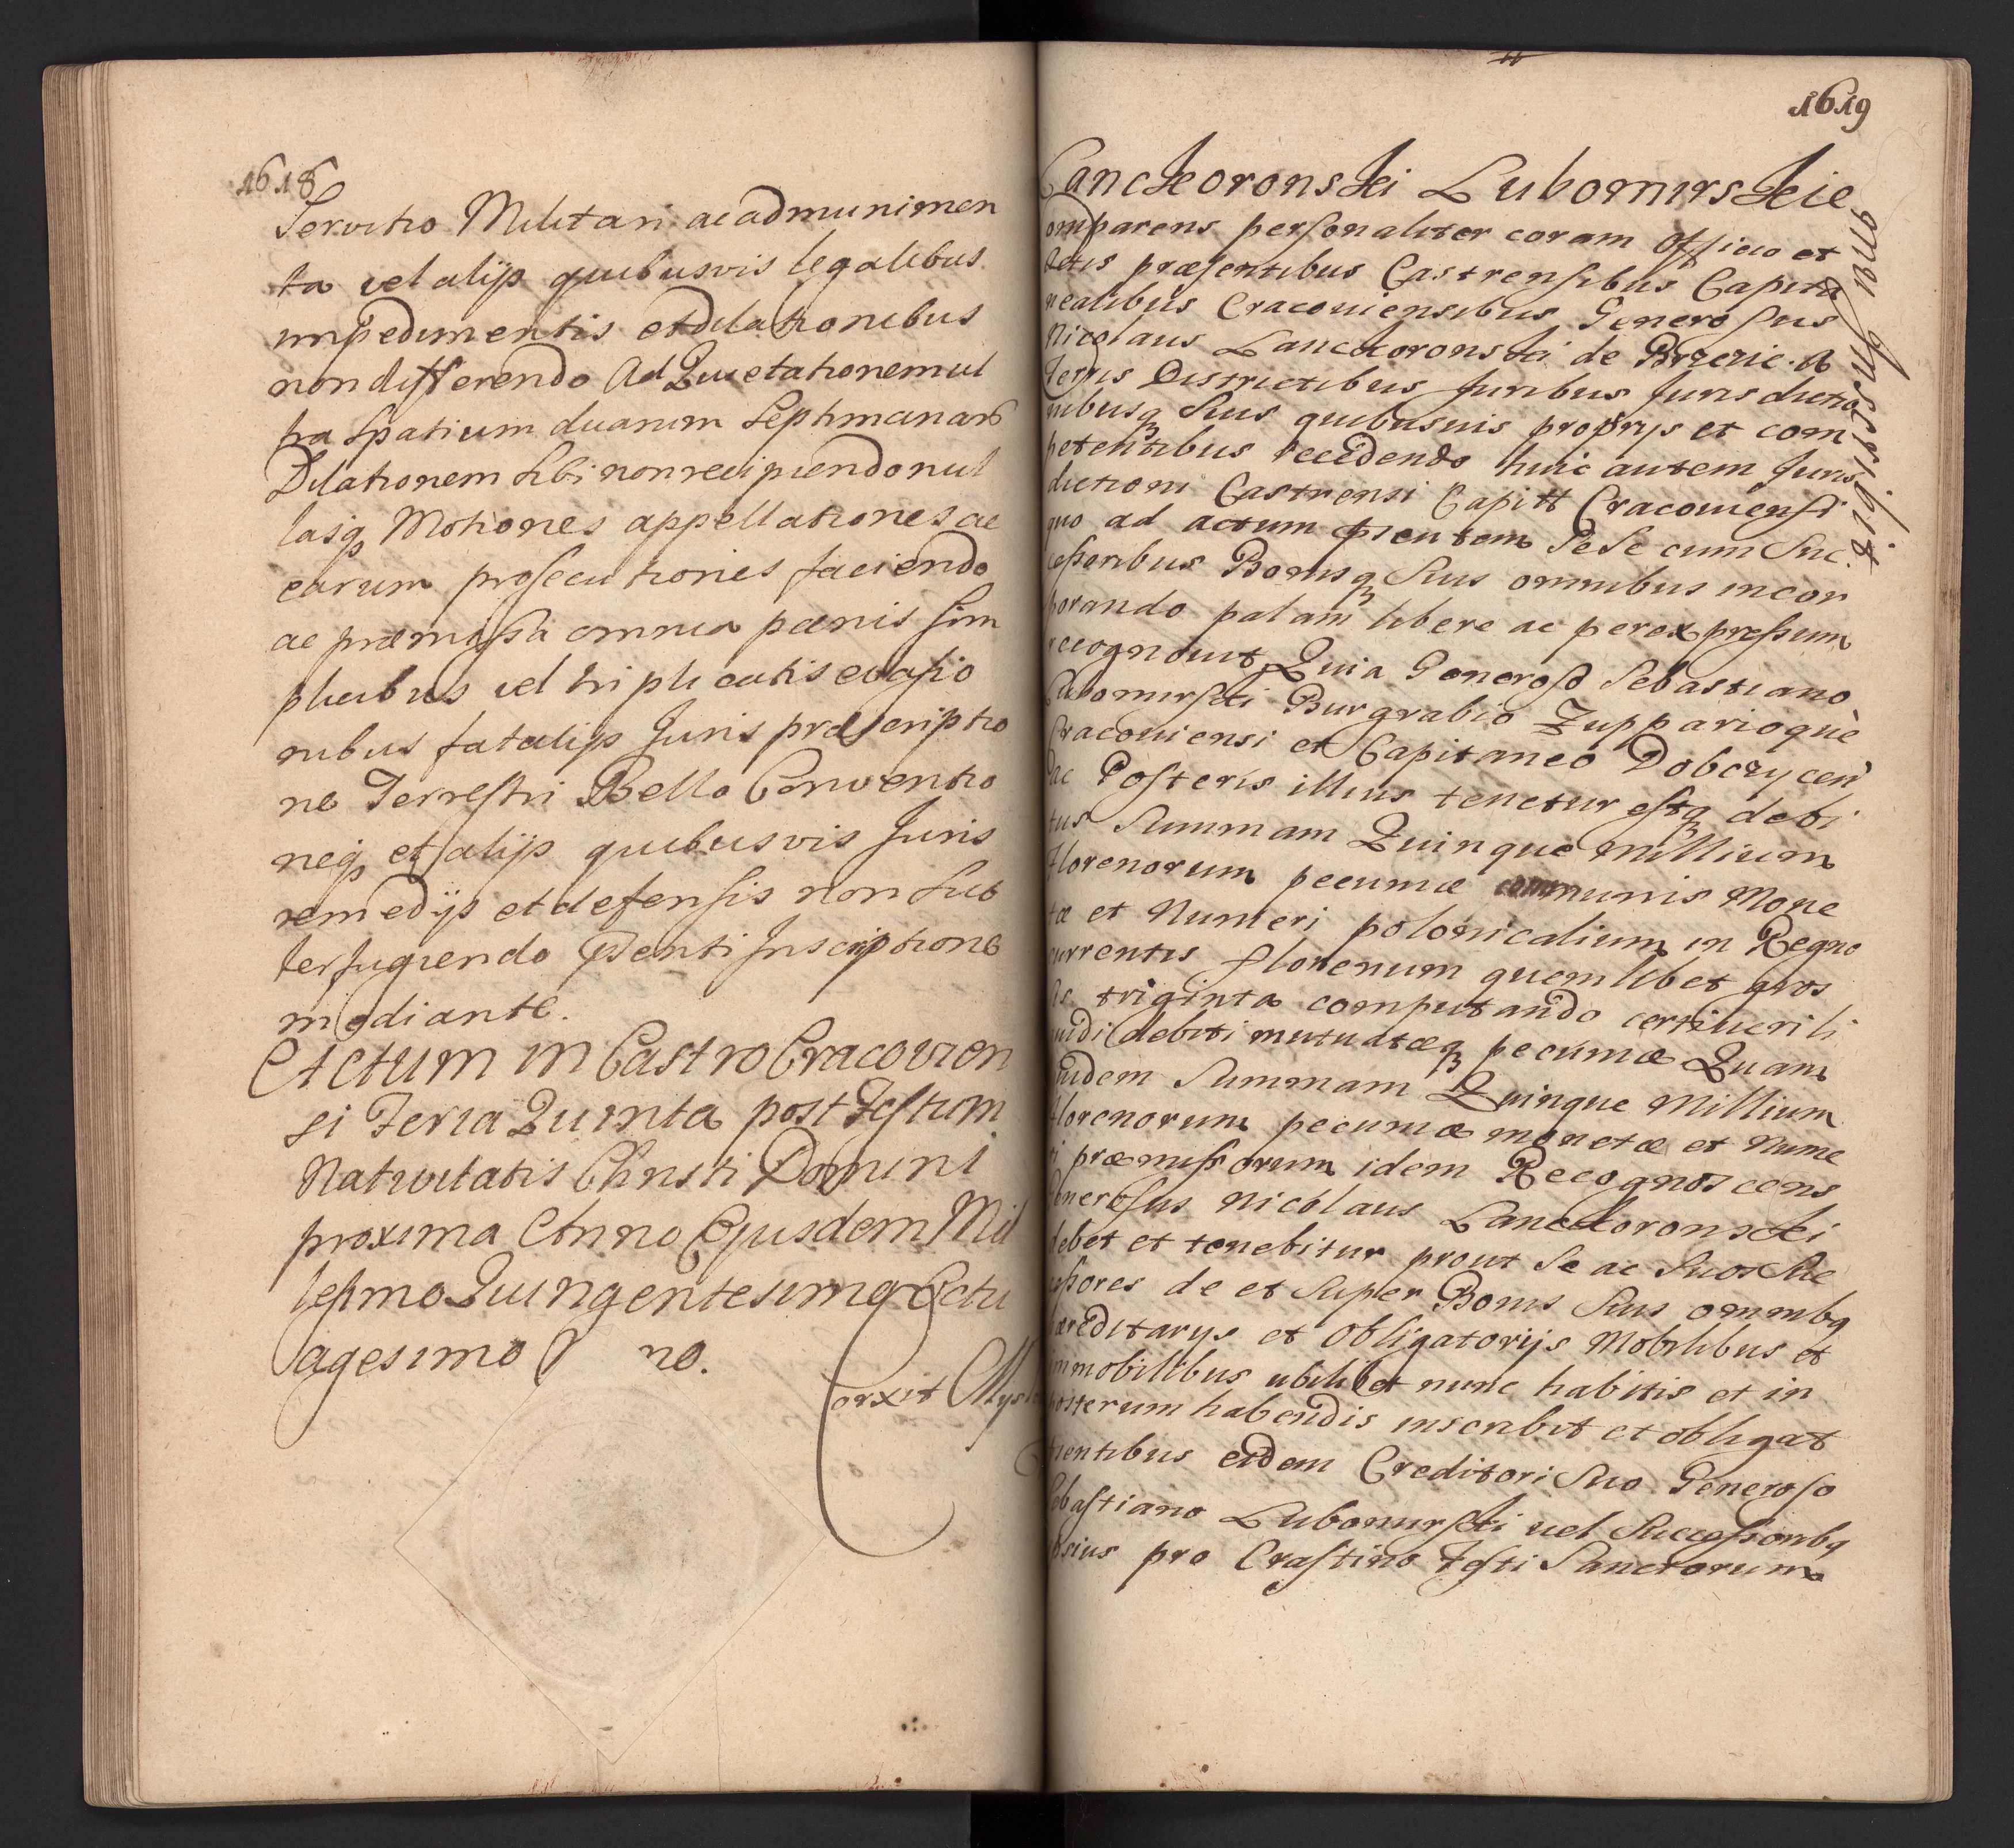 1618
Servitio Militari ac admunimen
ta vel alijs quibusvis legalibus
impedimentis et dilationibus
non differendo Ad Quietationem ul
tra Spatium duarum Septimanarũ
Dilationem Sibi non recipiendo nul
lasq Motiones appellationes ac
earum prosecutiones faciendo
ac præmissa omnia pænis sim
plicibus vel triplicatis evasio
nibus fatalijs Juris præscriptio
ne Terrestri Bello Conventio
neq et alijs quibusvis Juris
remedijs et defensis non Sub
terfugiendo psenti Inscriptione
mediante.
Actum in Castro Cracovien
si Feria Quinta post Festum
Nativitatis Christi Domini
proxima Anno Ejusdem Mil
lesimo Quingentesimo Octu
agesimo no.
1619
Lanckoronski Lubomirskie
omparens personaliter coram Officio et
Actis præsentibus Castrensibus Capita
nealibus Cracoviensibus Generosus
Nicolaus Lanckoronski de Brzezie A
Terris Districtibus Juribus Jurisdictio
nibusq Suis quibusuis proprys et com
petentibus recedendo huic autem Juris
dictioni Castrensi Capitt Cracouiensi
quo ad actum psentem Sese cum Suc
cessoribus Bonisq Suis omnibus incor
porando palam libere ac per expressum
recognouit Quia Generoso Sebastiano
Lubomirski Burgrabio Zupparioque
Cracouiensi et Capitaneo Dobczycen
ac Posteris illius tenetur estq debi
tus Summam Quinque Millium
Florenorum pecuniæ communis Mone
tæ et Numeri polonicalium in Regno
currentis florenum quemlibet gros
os triginta computando certi ueri li
uidi debiti mutuatæq pecuniæ Quam
uidem Summam Quinque Millium
florenorum pecuniæ monetæ et Nume
ri præmissorum idem Recognoscens
Generosus Nicolaus Lanckoronski
debet et tenebitur prout Se ac Suos Suc
cessores de et Super Bonis Suis omnibq
hæreditarys et Obligatorijs Mobilibus et
immobilibus ubilibet nunc habitis et in
posterum habendis inscribit et obligat
eidem Creditori Suo Generoso
Sebastiano Lubomirski uel Successoribq
ipsius pro Crastino Festi Sanctorum